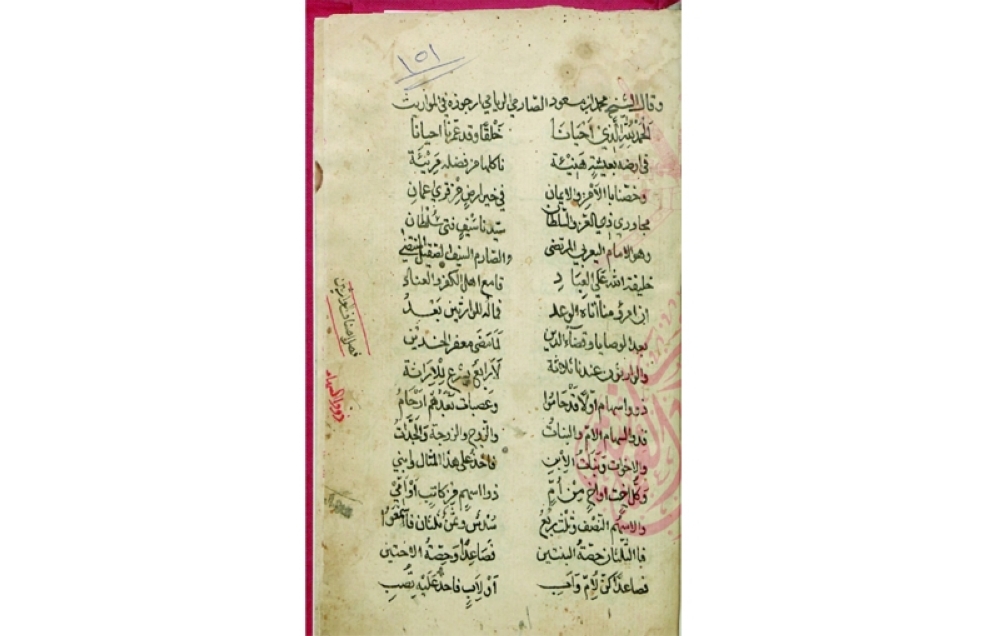 ١٥١
وقال الشيخ محمد بن مسعود الصارمي الريامي ارجوزة في المواريث
الحمد لله الذي أحيانا خلقا وقد عمرنا احيانا
في ارضه بعيشة هنيئة ناكلها من فضله مريئة
وخصنا بالأمن والايمان في خير ارض من قرى عمان
مجاوري ذي العز والسلطان سيدنا سيف فتى سلطان
وهو الامام اليعربي المرتضى والصارم السيف الصقيل المنتضى
خليفة الله على العباد قامع اهل الكفر والعناد
ان امرؤ منا أتاه الوعد فماله للوارثين بعد
بعد الوصايا وقضاء الدين لما مضى
والوارثون عندنا ثلاثة لا رابع يدع للوراثة
ذووا سهام اولا قد حاموا وعصبات بعدهم ارحام
فذو السهام الام والبنات والزوج والزوجة والجدات
والاخوات وبنات الابن فاحذ على هذا المثال وابني
وكل اخت او اخ من أم ذوا اسهم من كاتب أو أمي
والاسهم النصف وثلث ربع سدس وثمن ثلثان فاسمعوا
فالثلثان حصة البنتين فصاعدا وحصة الاختين
فصاعدا كن لأم وأب أو لأب فاحذ عليه تصب
فصل اصناف الوارثين
ذووا السهام